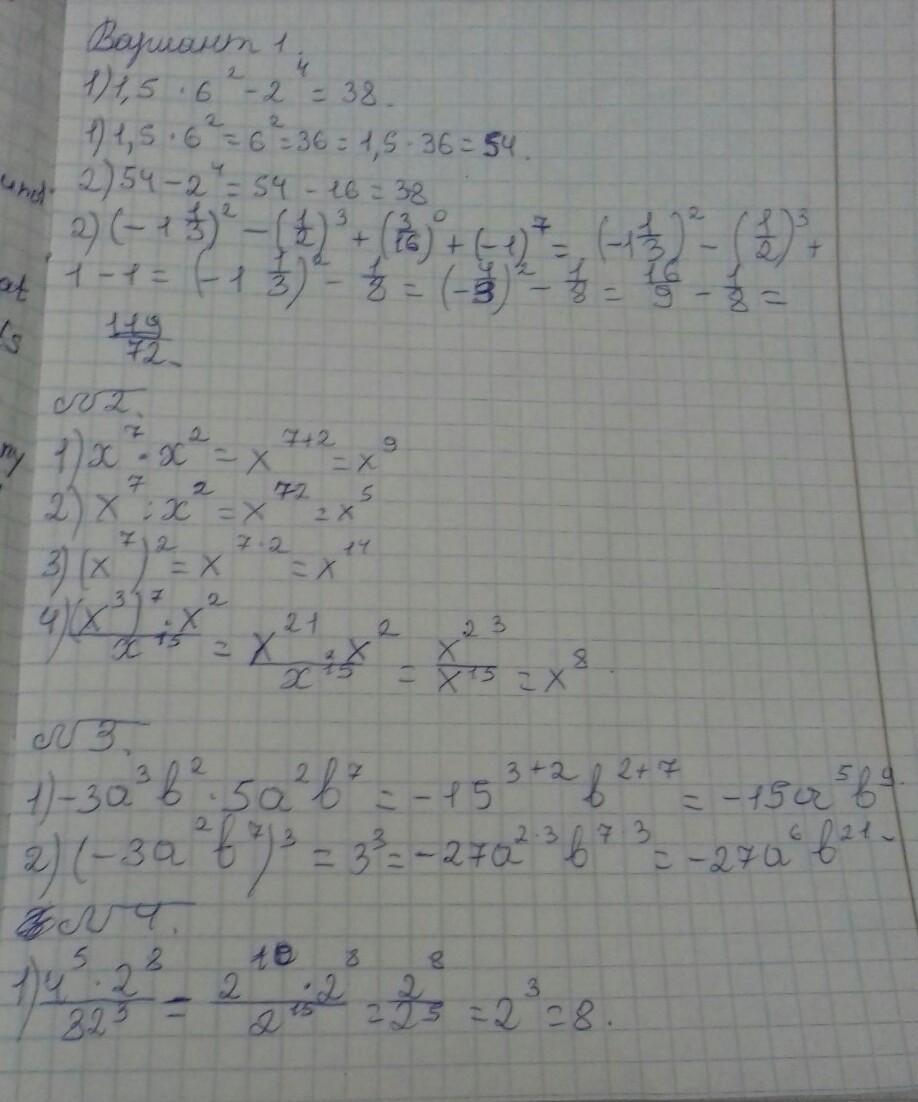 Вариант 1.
1) 1,5 · 6² - 2⁴ = 38.
1) 1,5 · 6² = 6² = 36 = 1,5 · 36 = 54.
2) 54 - 2⁴ = 54 - 16 = 38
2) (-1 1/3)² - (1/2)³ + (3/16)⁰ + (-1)⁷ = (-1 1/3)² - (1/2)³ +
1 - 1 = (-1 1/3)² - 1/8 = (-4/3)² - 1/8 = 16/9 - 1/8 =
119/72.
№2.
1) x⁷ · x² = x⁷⁺² = x⁹
2) x⁷ : x² = x⁷² = x⁵
3) (x⁷)² = x⁷·² = x¹⁴
4) (x³)⁷ · x²/x¹⁵ = x²¹ · x²/x¹⁵ = x²³/x¹⁵ = x⁸.
№3.
1) -3a³b² · 5a²b⁷ = -15³⁺² b²⁺⁷ = -15a⁵b⁹.
2) (-3a²b⁷)³ = 3³ = -27a²·³ b⁷·³ = -27a⁶b²¹.
№4.
1) 4⁵ · 2⁸/32³ = 2¹⁰ · 2⁸/2¹⁵ = 2⁸/2⁵ = 2³ = 8.